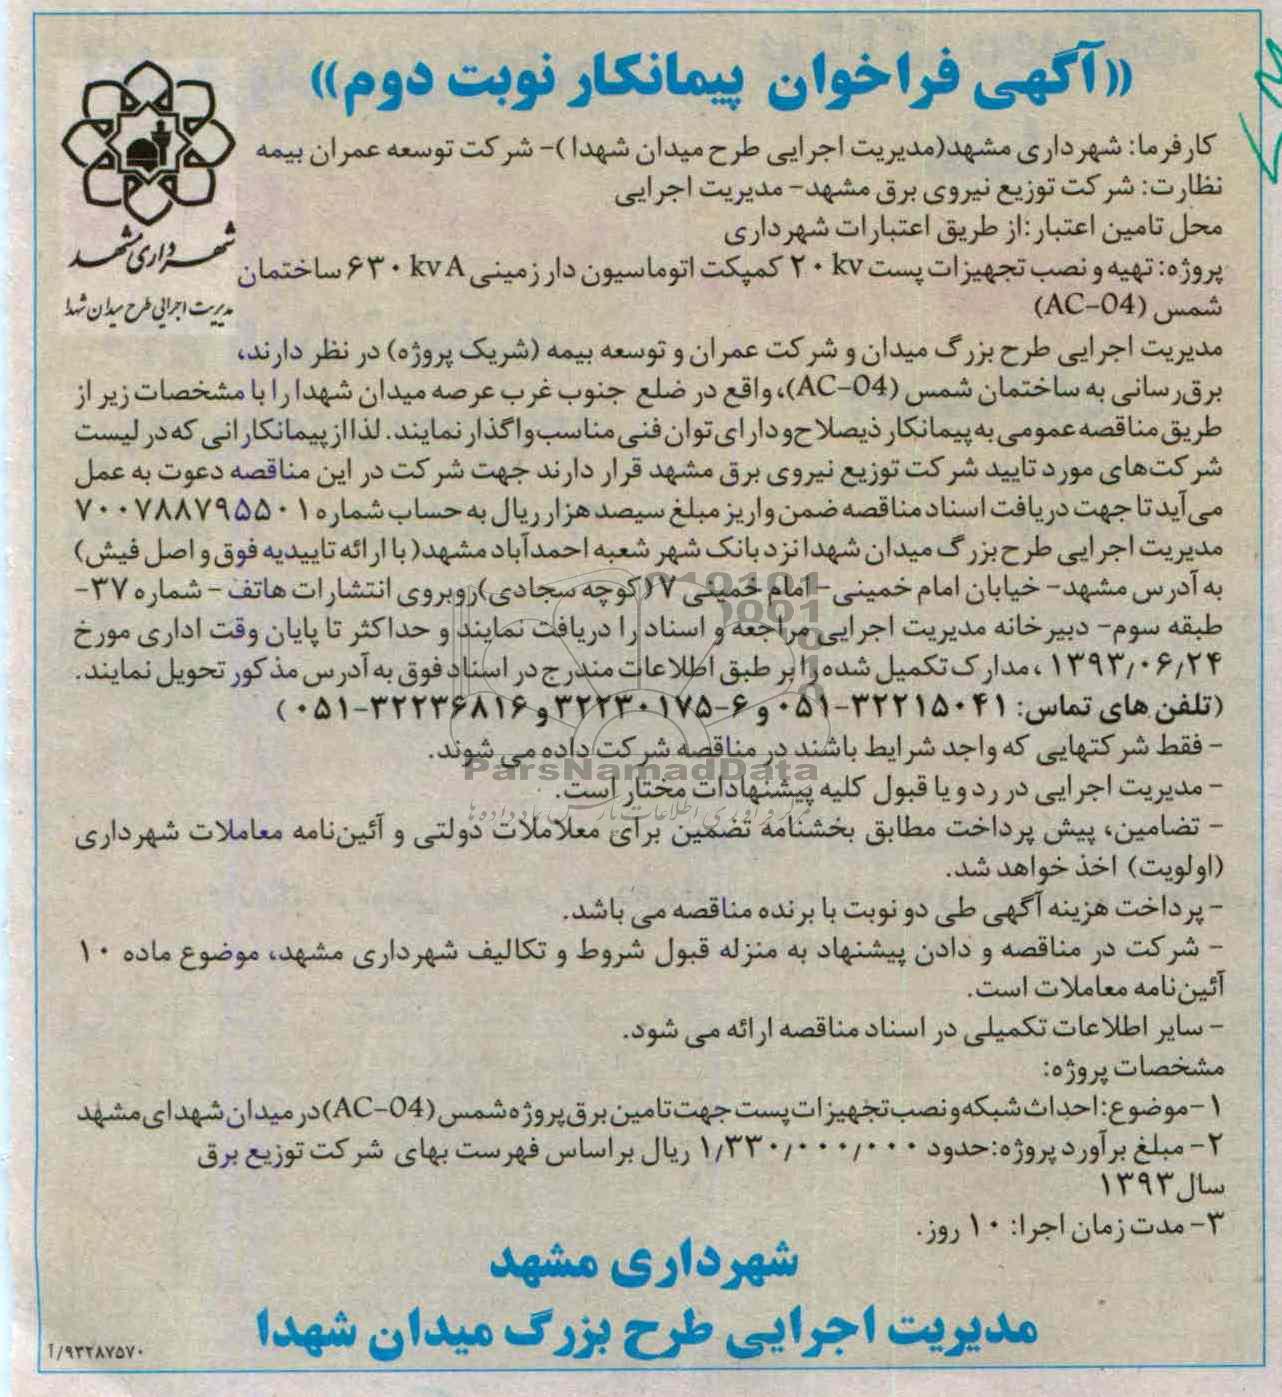 «آگهی فراخوان پیمانکار نوبت دوم»
شهرداری مشهد
مدیریت اجرایی طرح میدان شهدا
کارفرما: شهرداری مشهد(مدیریت اجرایی طرح میدان شهدا)- شرکت توسعه عمران بیمه
نظارت: شرکت توزیع نیروی برق مشهد- مدیریت اجرایی
محل تامین اعتبار:از طریق اعتبارات شهرداری
پروژه: تهیه و نصب تجهیزات پست ۲۰ kv کمپکت اتوماسیون دار زمینی ۶۳۰ kvA ساختمان
شمس (AC-04)
مدیریت اجرایی طرح بزرگ میدان و شرکت عمران و توسعه بیمه (شریک پروژه) در نظر دارند،
برق‌رسانی به ساختمان شمس (AC-04)، واقع در ضلع جنوب غرب عرصه میدان شهدا را با مشخصات زیر از
طریق مناقصه عمومی به پیمانکار ذیصلاح و دارای توان فنی مناسب واگذار نمایند. لذا از پیمانکارانی که در لیست
شرکت‌های مورد تایید شرکت توزیع نیروی برق مشهد قرار دارند جهت شرکت در این مناقصه دعوت به عمل
می‌آید تا جهت دریافت اسناد مناقصه ضمن واریز مبلغ سیصد هزار ریال به حساب شماره ۷۰۰۷۸۸۷۹۵۵۰۱
مدیریت اجرایی طرح بزرگ میدان شهدا نزد بانک شهر شعبه احمدآباد مشهد( با ارائه تاییدیه فوق و اصل فیش)
به آدرس مشهد- خیابان امام خمینی- امام خمینی ۷(کوچه سجادی)روبروی انتشارات هاتف - شماره ۳۷-
طبقه سوم- دبیرخانه مدیریت اجرایی مراجعه و اسناد را دریافت نمایند و حداکثر تا پایان وقت اداری مورخ
۱۳۹۳/۰۶/۲۴ ،مدارک تکمیل شده را بر طبق اطلاعات مندرج در اسناد فوق به آدرس مذکور تحویل نمایند.
(تلفن های تماس: ۳۲۲۱۵۰۴۱-۰۵۱ و ۶-۳۲۲۳۰۱۷۵ و ۳۲۲۳۶۸۱۶-۰۵۱ )
- فقط شرکتهایی که واجد شرایط باشند در مناقصه شرکت داده می شوند.
ParsNamadData
- مدیریت اجرایی در رد و یا قبول کلیه پیشنهادات مختار است.
- تضامین، پیش پرداخت مطابق بخشنامه تضمین برای معلاملات دولتی و آئین‌نامه معاملات شهرداری
(اولویت) اخذ خواهد شد.
- پرداخت هزینه آگهی طی دو نوبت با برنده مناقصه می باشد.
- شرکت در مناقصه و دادن پیشنهاد به منزله قبول شروط و تکالیف شهرداری مشهد، موضوع ماده ۱۰
آئین‌نامه معاملات است.
- سایر اطلاعات تکمیلی در اسناد مناقصه ارائه می شود.
مشخصات پروژه:
۱-موضوع: احداث شبکه و نصب تجهیزات پست جهت تامین برق پروژه شمس (AC-04)در میدان شهدای مشهد
۲- مبلغ برآورد پروژه:حدود ۱/۳۳۰/۰۰۰/۰۰۰ ریال براساس فهرست بهای شرکت توزیع برق
سال ۱۳۹۳
۳- مدت زمان اجرا: ۱۰ روز.
شهرداری مشهد
مدیریت اجرایی طرح بزرگ میدان شهدا
۹۳۲۸۷۵۷۰/آ